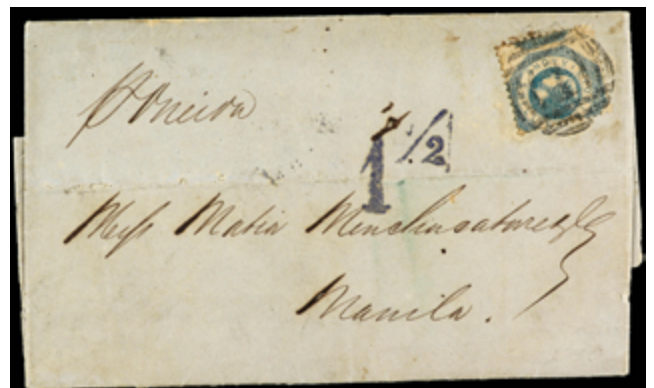 p Oneida
1 1/2
Mess Matia Menchacatorre &Co
Manila.